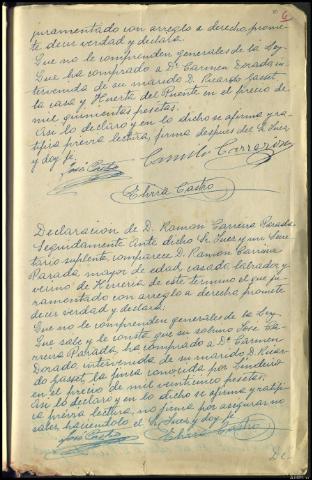 6
juramentado con arreglo a derecho prome-
te decir verdad y declara.
Que no le comprenden generales de la Ley.
Que ha comprado a Dª Carmen Dorado in-
tervenida de su marido D. Ricardo Gasset
la casa y Huerta del Puente en el precio de
mil quinientas pesetas.
Asi lo declaro y en lo dicho se afirma y ra-
tifica previa lectura, firma despues del Sr Juez
y doy fé.
José Castro Camilo Corrazón
Elvira Castro
Declaracion de D. Ramon Carreira Parada
Seguidamente ante dicho Sr. Juez y mi Secre-
tario suplente, comparece D. Ramon Carreira
Parada, mayor de edad, casado, labrador y
vecino de de este termino el que ju-
ramentado con arreglo a derecho promete
decir verdad y declara:
Que no le comprenden generales de la Ley
Que sabe y le consta que su sobrino José Ca-
rreira Parada, ha comprado a Dª Carmen
Dorado intervenida de su marido D. Ricar-
do Gasset la finca conocida por Lindeiro
en el precio de mil veinticinco pesetas.
Asi lo declaro y en lo dicho se afirma y ratifi-
ca previa lectura, no firma por asegurar no
saber haciendolo el Sr Juez y doy fé
José Castro Elvira Castro
De